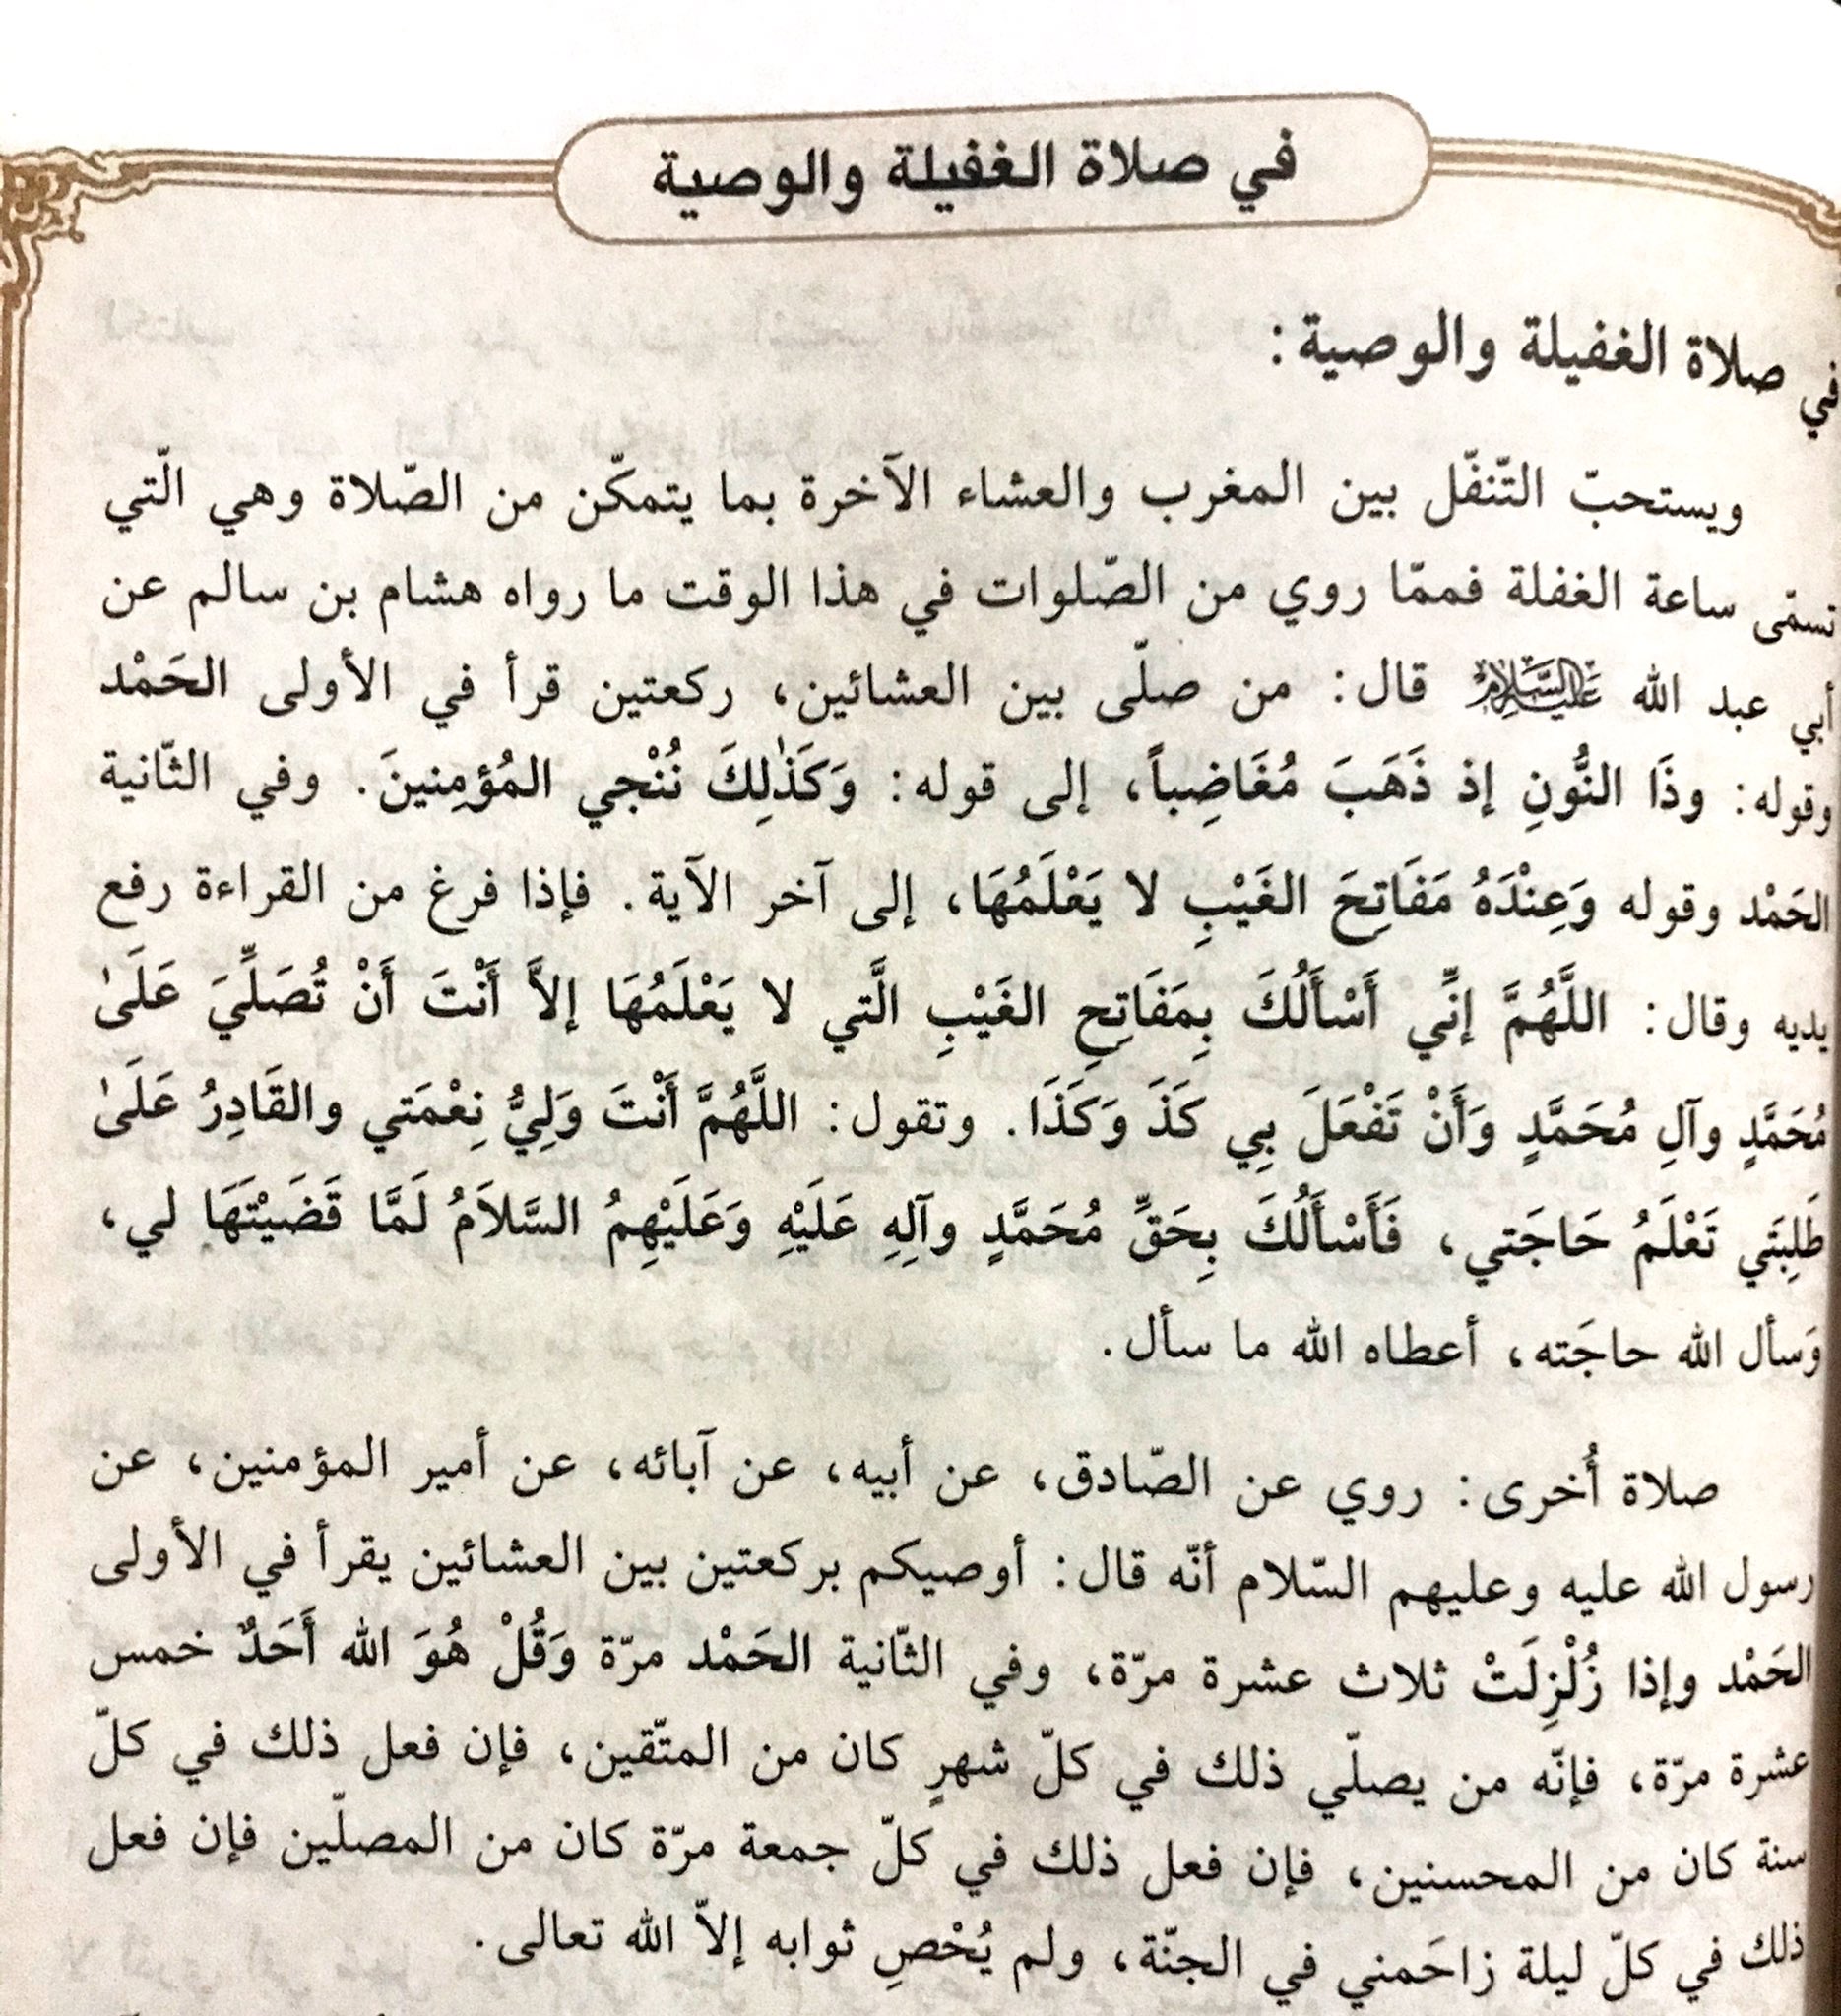 في صلاة الغفيلة والوصية
في صلاة الغفيلة والوصية:
ويستحبّ التّنفّل بين المغرب والعشاء الآخرة بما يتمكّن من الصّلاة وهي الّتي
تسمّى ساعة الغفلة فممّا روي من الصّلوات في هذا الوقت ما رواه هشام بن سالم عن
أبي عبد الله عَلَيْهِ السَّلَامُ قال: من صلّى بين العشائين، ركعتين قرأ في الأولى الحَمْد
وقوله: وذَا النُّونِ إذ ذَهَبَ مُغَاضِباً، إلى قوله: وَكَذٰلِكَ نُنْجي المُؤمِنينَ. وفي الثّانية
الحَمْد وقوله وَعِنْدَهُ مَفَاتِحَ الغَيْبِ لا يَعْلَمُهَا، إلى آخر الآية. فإذا فرغ من القراءة رفع
يديه وقال: اللَّهُمَّ إنِّي أَسْأَلُكَ بِمَفَاتِحِ الغَيْبِ الَّتي لا يَعْلَمُهَا إلاَّ أَنْتَ أَنْ تُصَلِّيَ عَلَىٰ
مُحَمَّدٍ وآلِ مُحَمَّدٍ وَأَنْ تَفْعَلَ بِي كَذَ وَكَذَا. وتقول: اللَّهُمَّ أَنْتَ وَلِيُّ نِعْمَتي والقَادِرُ عَلَىٰ
طَلِبَتَي تَعْلَمُ حَاجَتي، فَأَسْأَلُكَ بِحَقِّ مُحَمَّدٍ وآلِهِ عَلَيْهِ وَعَلَيْهِمُ السَّلاَمُ لَمَّا قَضَيْتَهَا لي،
وَسأل الله حاجَته، أعطاه الله ما سأل.
صلاة أُخرى: روي عن الصّادق، عن أبيه، عن آبائه، عن أمير المؤمنين، عن
رسول الله عليه وعليهم السّلام أنّه قال: أوصيكم بركعتين بين العشائين يقرأ في الأولى
الحَمْد وإذا زُلْزِلَتْ ثلاث عشرة مرّة، وفي الثّانية الحَمْد مرّة وَقُلْ هُوَ الله أَحَدٌ خمس
عشرة مرّة، فإنّه من يصلّي ذلك في كلّ شهرٍ كان من المتّقين، فإن فعل ذلك في كلّ
سنة كان من المحسنين، فإن فعل ذلك في كلّ جمعة مرّة كان من المصلّين فإن فعل
ذلك في كلّ ليلة زاحَمني في الجنّة، ولم يُحْصِ ثوابه إلاّ الله تعالى.